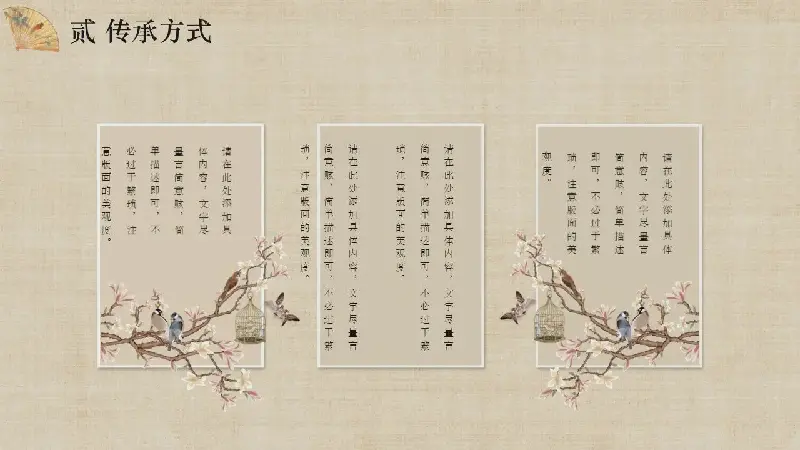 贰 传承方式
请在此处添加具
体内容，文字尽
量言简意赅，简
单描述即可，不
必过于繁琐，注
意版面的美观度。
请在此处添加具体内容，文字尽量言
简意赅，简单描述即可，不必过于繁
琐，注意版面的美观度。
请在此处添加具体内容，文字尽量言
简意赅，简单描述即可，不必过于繁
琐，注意版面的美观度。
请在此处添加具体
内容，文字尽量言
简意赅，简单描述
即可，不必过于繁
琐，注意版面的美
观度。